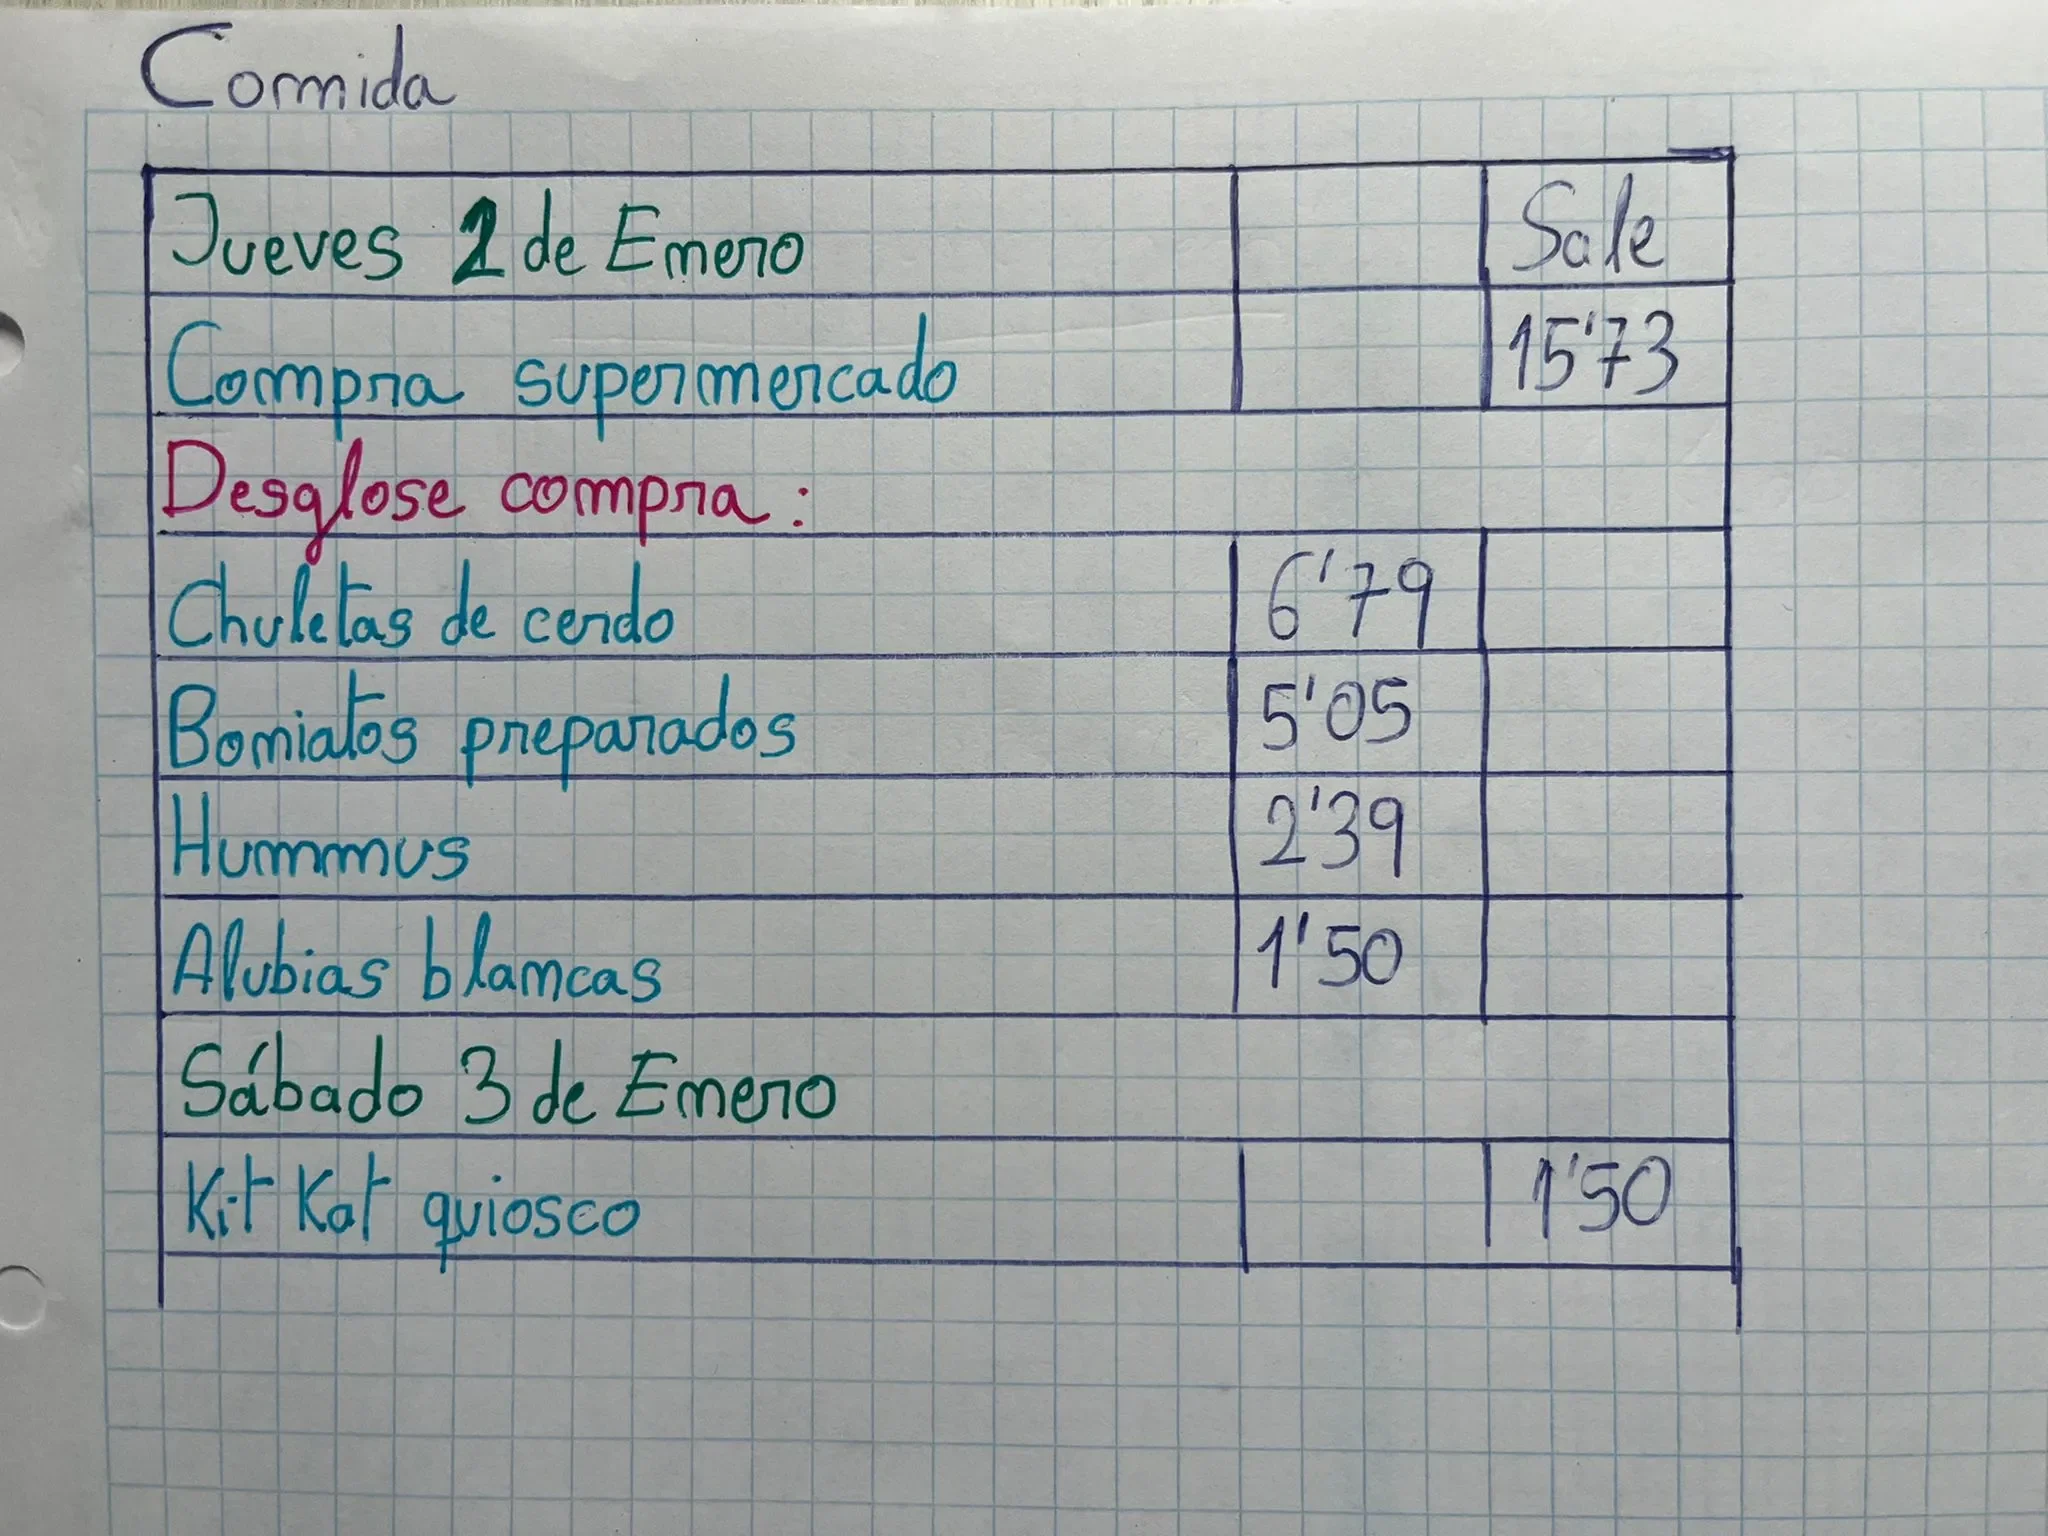 Comida
Jueves 1 de Enero Sale
Compra supermercado 15'73
Desglose compra:
Chuletas de cerdo 6'79
Boniatos preparados 5'05
Hummus 2'39
Alubias blancas 1'50
Sábado 3 de Enero
Kit Kat quiosco 1'50